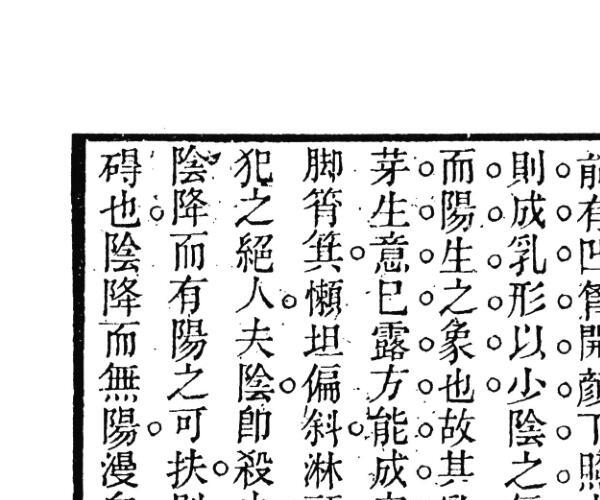 有凹 開顔
則成乳形以少陰之
而陽生之象也故其
芽生意已露方能成
脚筲箕懶坦偏斜淋
犯之絕人夫陰卽殺
陰降而有陽之可扶
碍也陰降而無陽漫